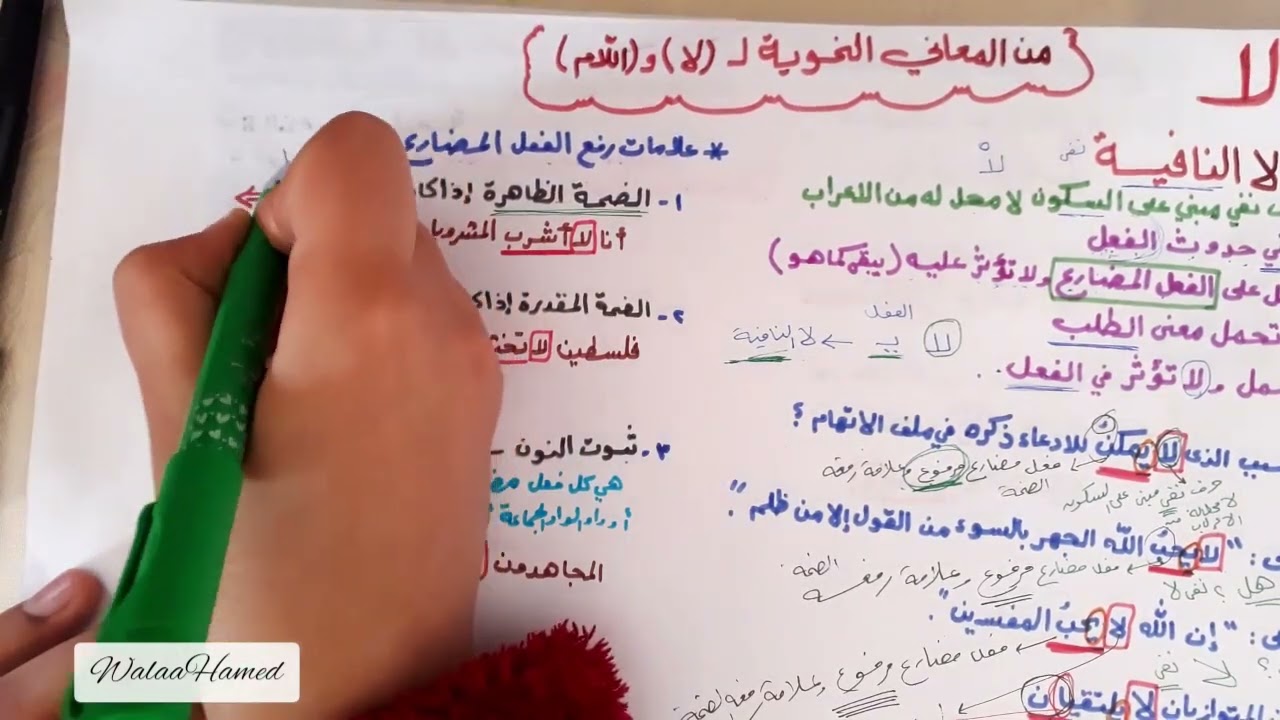 من المعاني النحوية لـ (لا) و(اللام)
لا
لا النافية
نفي
لا
نفي مبني على السكون لا محل له من الاعراب
حدوث الفعل
على الفعل المضارع ولا تؤثر عليه (يبقى كما هو)
تحمل معنى الطلب
ولا تؤثر في الفعل.
الفعل
لا يـ ← لا النافية
الذي لا يمكن للادعاء ذكره في ملف الاتهام ؟
فعل مضارع مرفوع وعلامة رفعه
الضمة
حرف نفي مبني على السكون
لا محل له من
الاعراب
: "لا يحبُ الله الجهر بالسوء من القول إلا من ظلم".
فعل مضارع مرفوع وعلامة رفعه الضمة
هل ؟ نفي لا
: "إن الله لا يحبُ المفسدين".
فعل مضارع مرفوع وعلامة رفعه الضمة
؟ لا نفي
المتوازيان لا يلتقيان
* علامات رفع الفعل المضارع
١- الضمة الظاهرة إذا كا
أنا لا أشرب المشروبا
٢- الضمة المقدرة إذا كا
فلسطين لا تخت
٣- ثبوت النون
هي كل فعل مض
أو واو الجماعة
المجاهدون
WalaaHamed